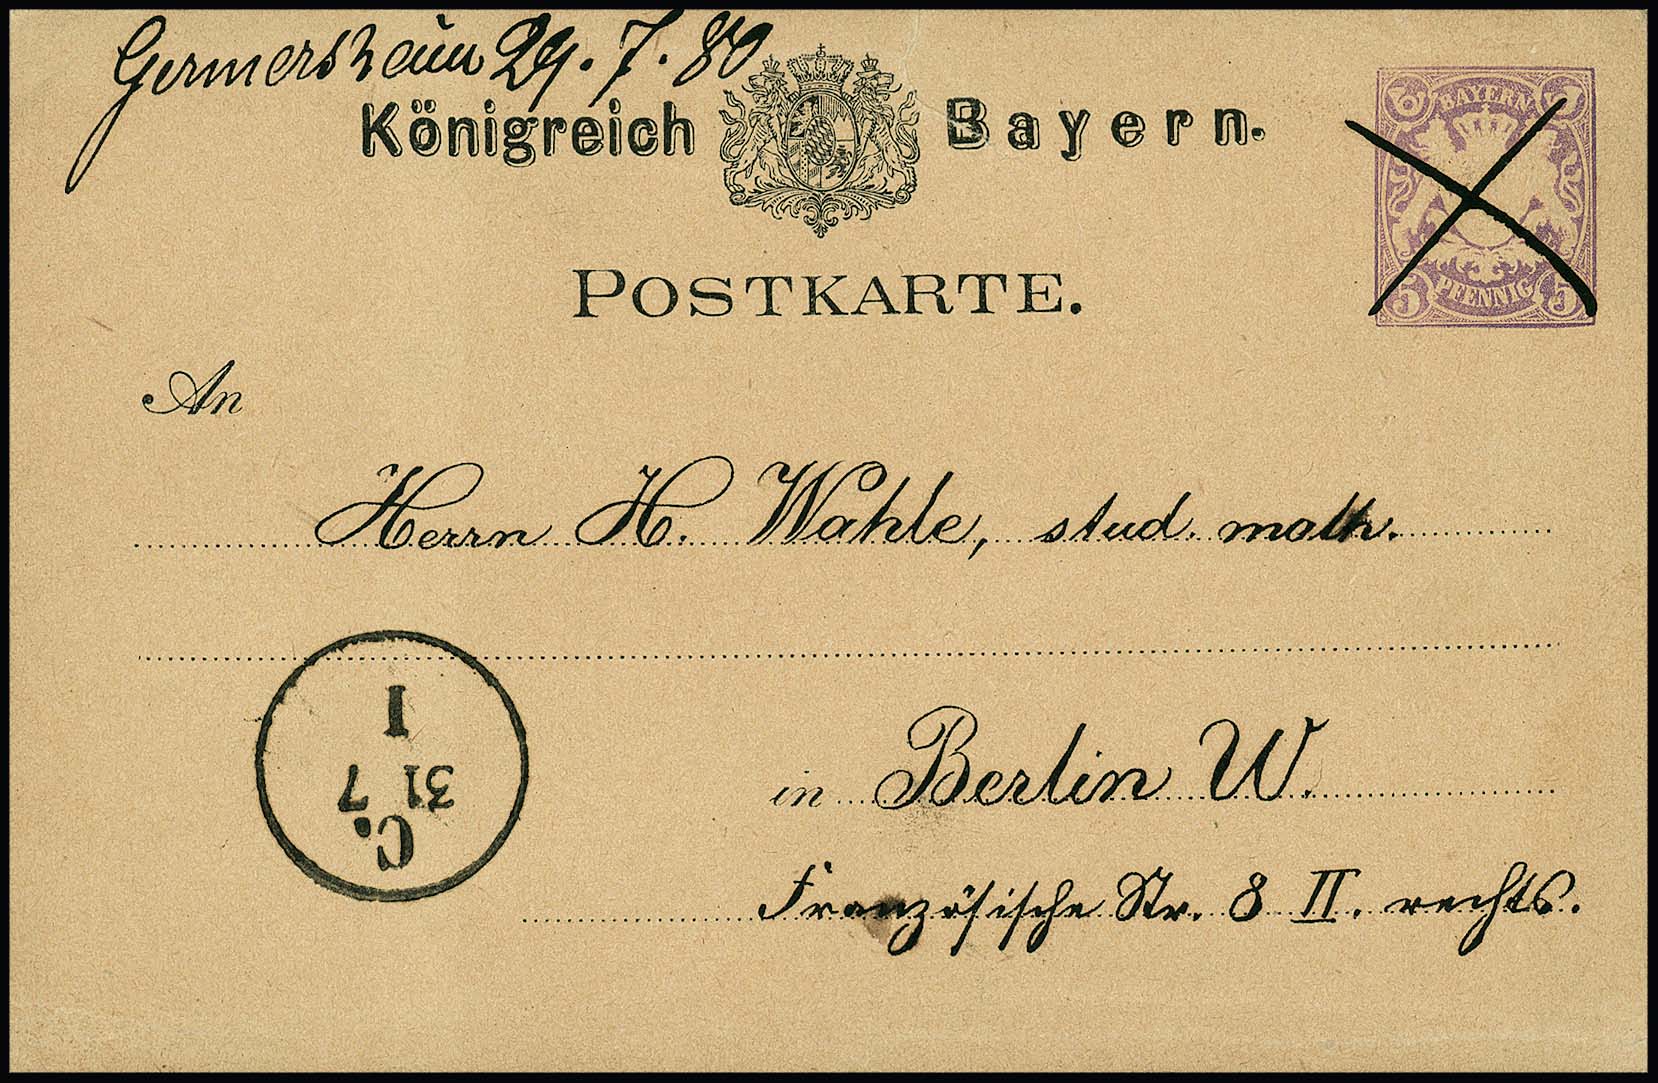 Germersheim 29. 7. 80
Königreich Bayern.
BAYERN
5 PFENNIG 5
POSTKARTE.
An
Herrn H. Wahle, stud. math.
in Berlin W.
Französische Str. 8 II. rechts.
C.
31 7
I